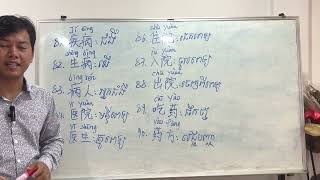 jí bìng
81. 疾病: ជំងឺ
shēng bìng
82. 生病: ឈឺ
bìng rén
83. 病人: អ្នកជំងឺ
yī yuàn
84. 医院: មន្ទីរពេទ្យ
yī shēng
85. 医生: គ្រូពេទ្យ
zhù yuàn
86. 住院:
rù yuàn
87. 入院: ចូលពេទ្យ
chū yuàn
88. 出院: ចេញពីពេទ្យ
chī yào
89. 吃药: ញ៉ាំថ្នាំ
yào
90. 药